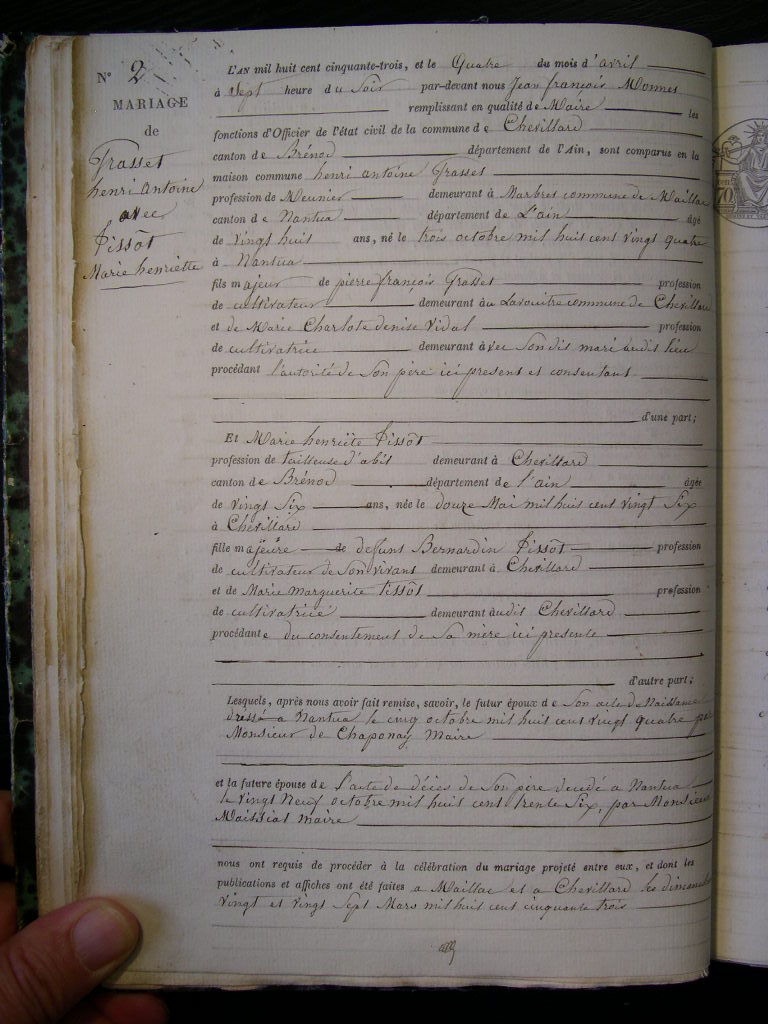 N° 2
MARIAGE
de
Grasset
henri Antoine
avec
Tissot
Marie henriette
L'AN mil huit cent cinquante-trois, et le Quatre du mois d'avril
à Sept heure du Soir par-devant nous Jean françois Monnet
remplissant en qualité de Maire les
fonctions d'Officier de l'état civil de la commune de Chevillard
canton de Brénod département de l'Ain, sont comparus en la
maison commune henri antoine Grasset
profession de Meunier demeurant à Marbres commune de Maillac
canton de Nantua département de L'ain âgé
de Vingt huit ans, né le trois octobre mil huit cent vingt quatre
à Nantua
fils majeur de pierre françois Grasset profession
de cultivateur demeurant à commune de Chevillard
et de Marie Charlote denise Vidal profession
de cultivatrice demeurant avec Son dit mari audit lieu
procédant l'autorité de Son père ici present et consentant
d'une part;
Et Marie henriëte Tissot
profession de tailleuse d'abit demeurant à Chevillard
canton de Brénod département de l'ain âgée
de Vingt Six ans, née le douze Mai mil huit cent vingt Six
à Chevillard
fille majeure de defunt Bernardin Tissot profession
de cultivateur de Son vivant demeurant à Chevillard
et de Marie Marguerite tissot profession
de cultivatrice demeurant audit Chevillard
procédante du consentement de Sa mère ici presente
d'autre part;
Lesquels, après nous avoir fait remise, savoir, le futur époux de Son acte de Naissance
dressé a Nantua le cinq octobre mil huit cent vingt quatre par
Monsieur de Chaponay maire
et la future épouse de l'acte de décès de Son père decédé a Nantua
le Vingt Neuf octobre mil huit cent trente Six, par Monsieur
Maissiat maire
nous ont requis de procéder à la célébration du mariage projeté entre eux, et dont les
publications et affiches ont été faites a Maillac et a Chevillard les dimanches
Vingt et Vingt Sept Mars mil huit cent cinquante trois